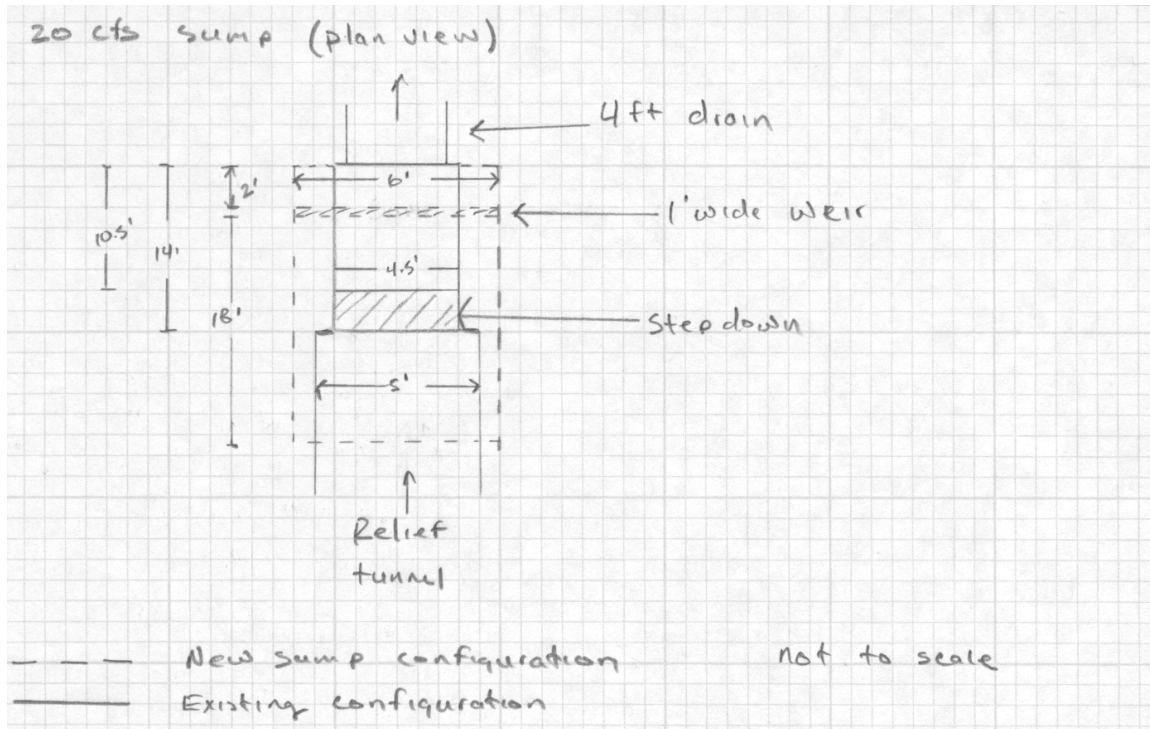 20 cfs sump (plan view)
4 ft drain
6'
2'
1' wide weir
10.5'
14'
4.5'
18'
Stepdown
5'
Relief
tunnel
New sump configuration
not to scale
Existing configuration